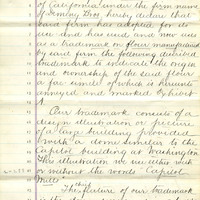 of California under the firm name
of Deming Bros hereby declare that
said firm has adopted for its
use and has used and now uses
as a trademark on flour manufactured
by said firm the following described
trademark to indicate the origin
and ownership of the said flour
a fac simile of which is hereunto
annexed and marked Exhibit
A.
Our trademark consists of a
design illustration or picture
of a large building provided
with a dome similar to the
Capitol building at Washington
This illustration we use either with
or without the words "Capitol
Mills"
The feature of our trademark